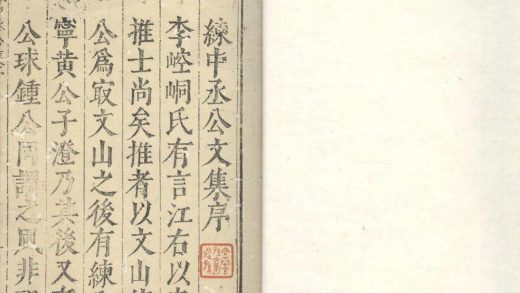 練中丞公文集序
李崆峒氏有言江右以
推士尚矣推者以文山
公爲取文山之後有練
寧黃公子澄乃其後又
公球鍾公同謂之非